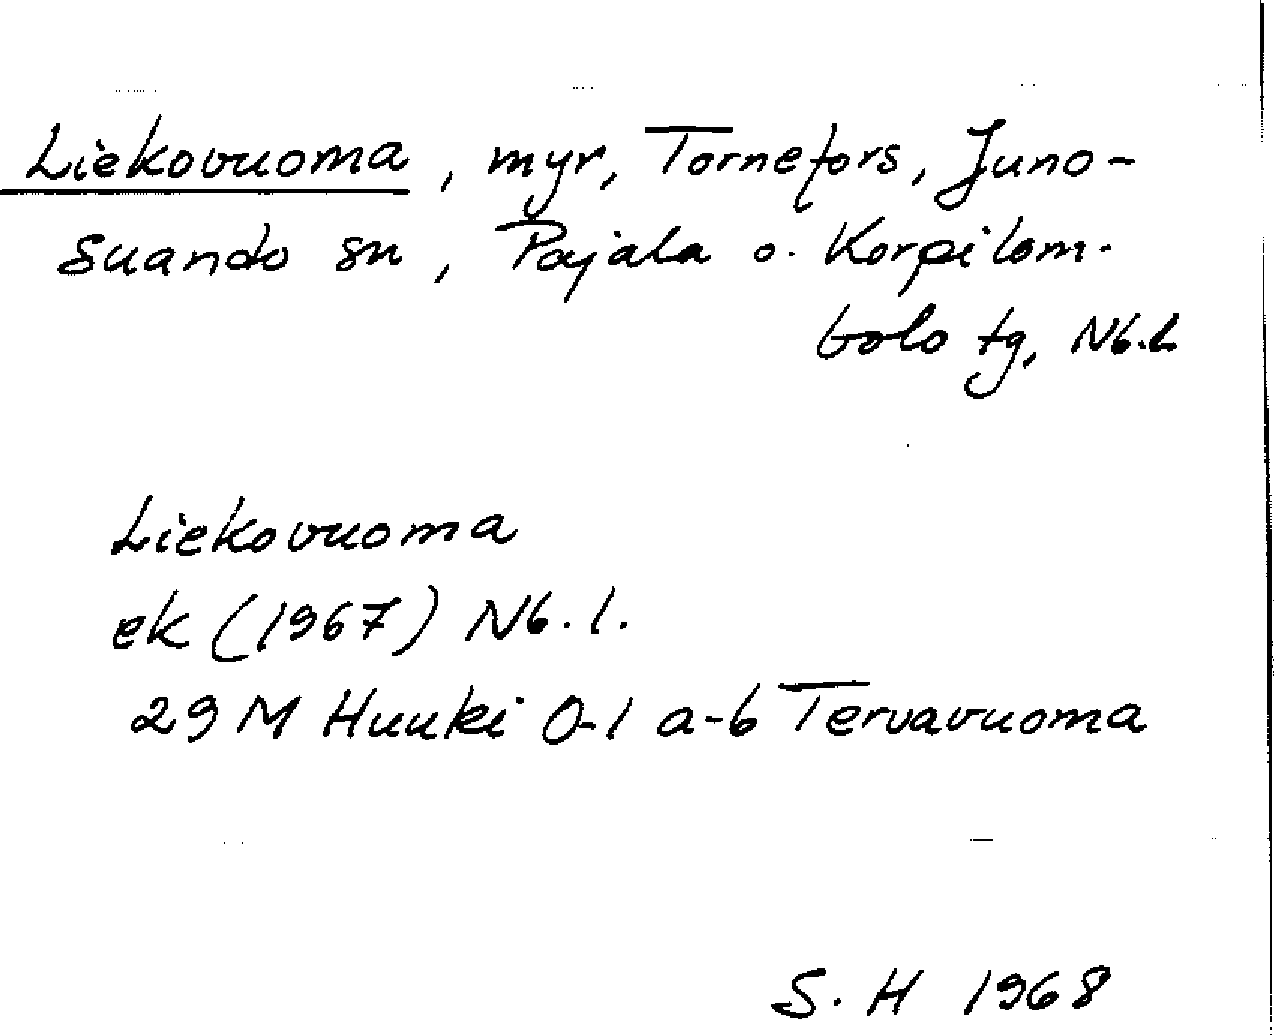 Liekovuoma, myr, Tornefors, Juno-
suando sn, Pajala o. Korpilom-
bolo tg, Nb.L
Liekovuoma
ek (1967) Nb.l.
29 M Huuki 0-1 a-b Tervavuoma
S.H 1968